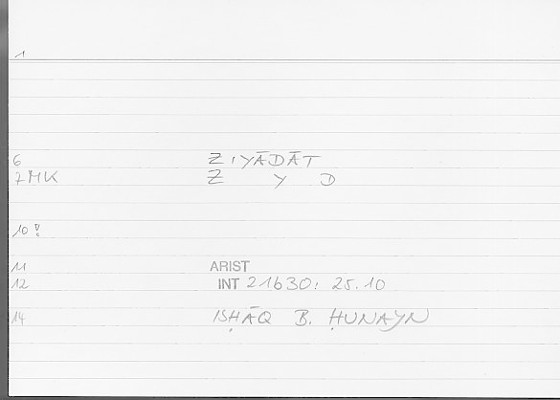 1
6 ZIYĀDĀT
7 MK Z Y D
10 !
11 ARIST
12 INT 21630: 25.10
14 ISḤĀQ B. ḤUNAYN